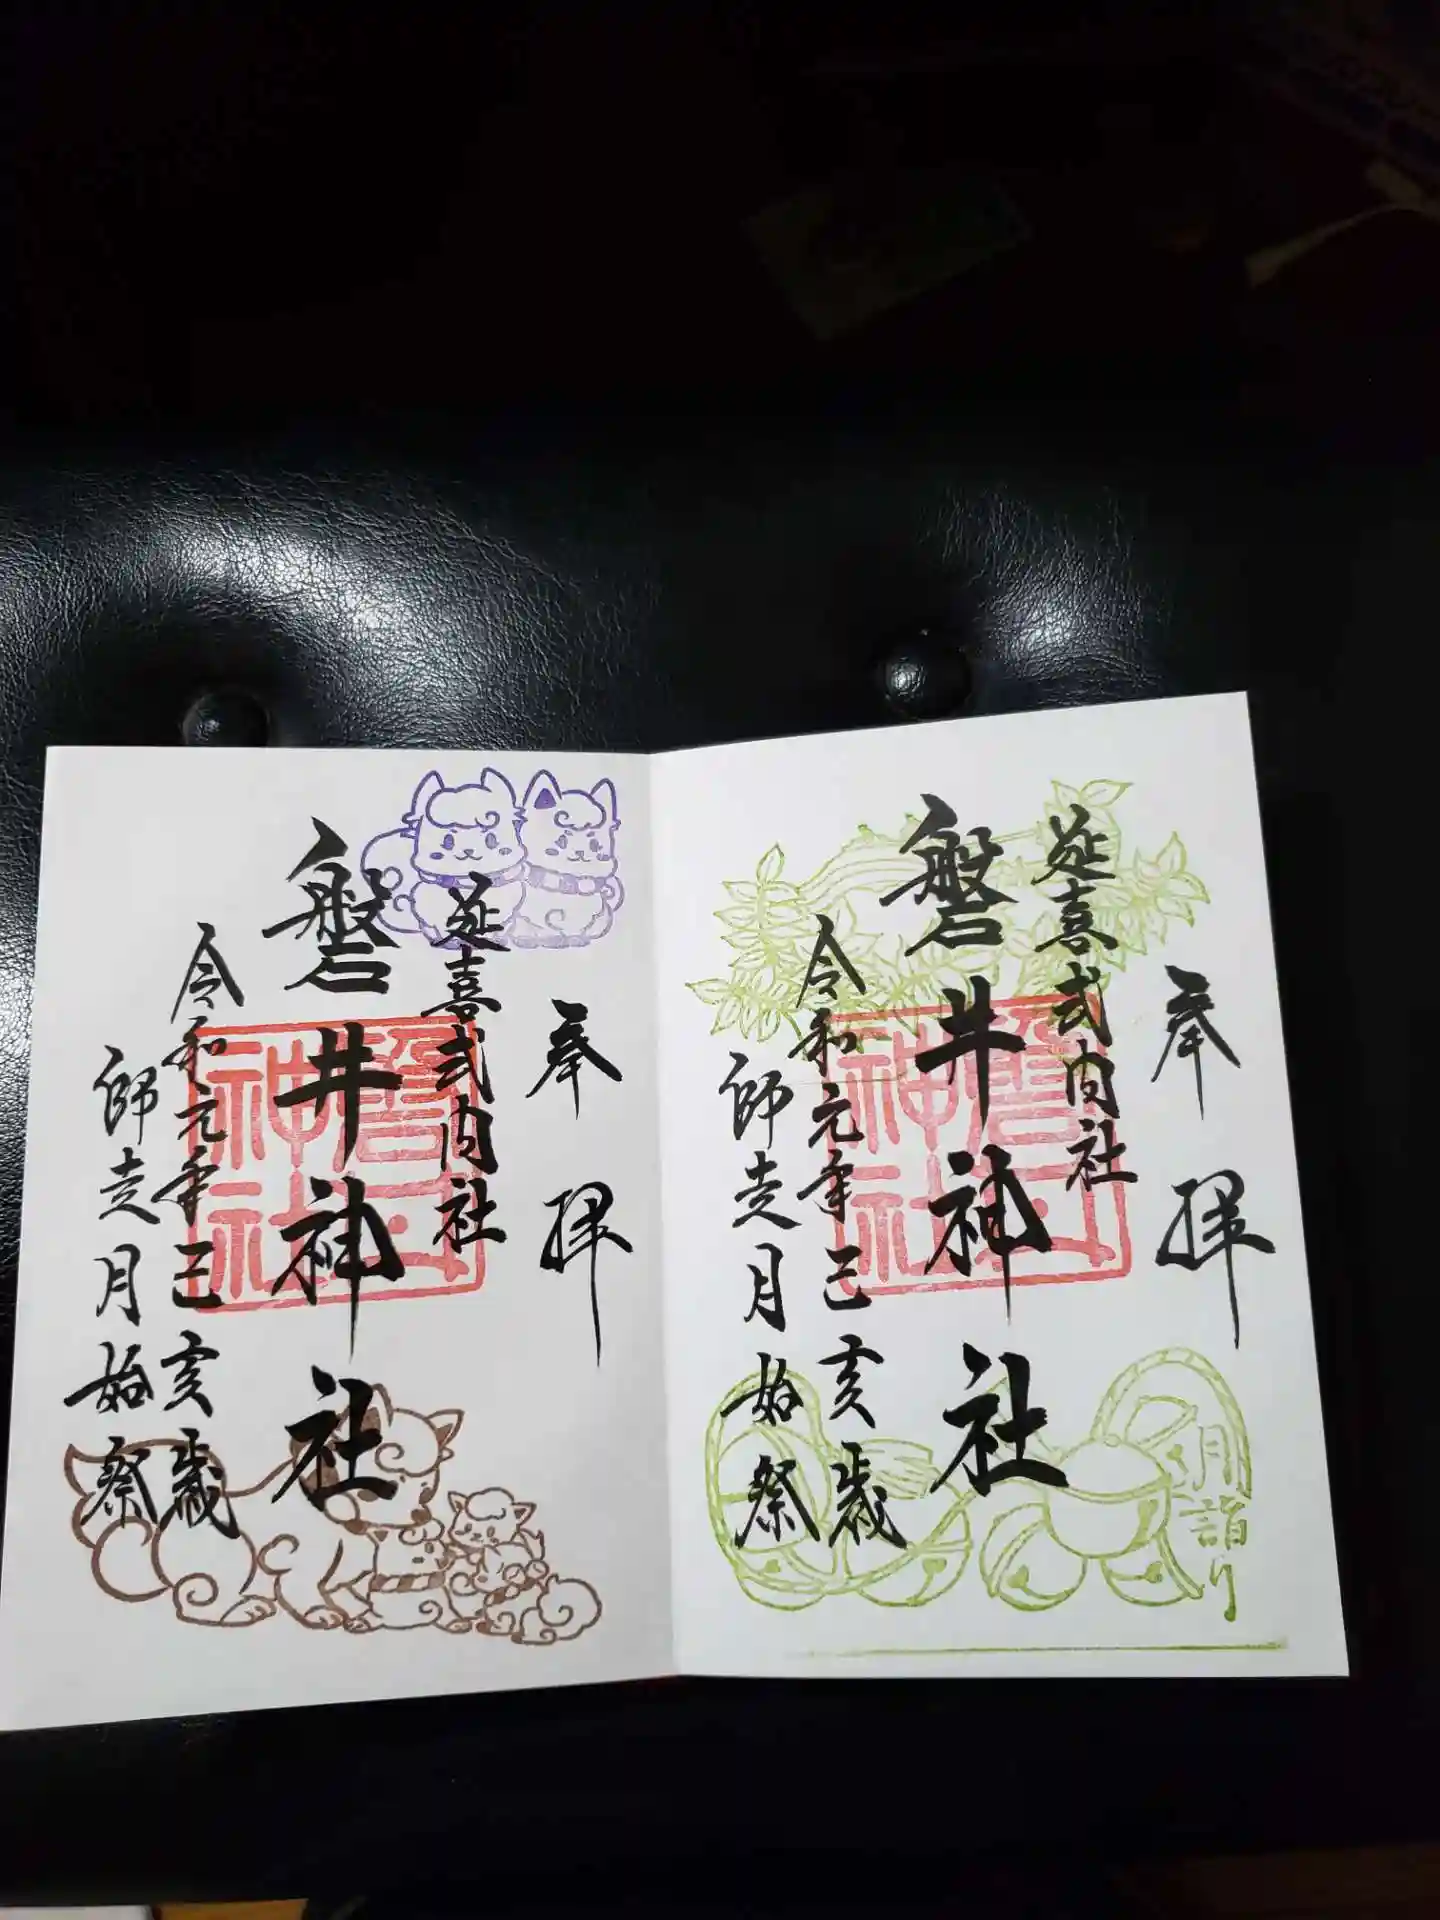 奉拝
延喜式内社
磐井神社
令和元年己亥歳
師走月始祭
月詣り
磐井神社
奉拝
延喜式内社
磐井神社
令和元年己亥歳
師走月始祭
磐井神社